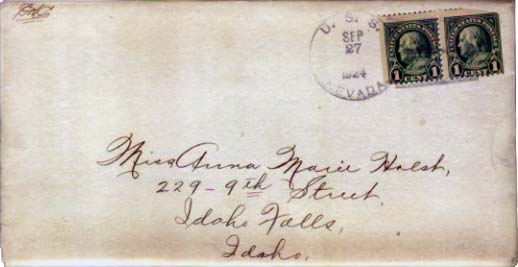 U. S. S.
SEP
27
1924
NEVADA
UNITED STATES POSTAGE
1 CENT 1
UNITED STATES POSTAGE
1 CENT 1
Miss Anna Marie Holst,
229-9th Street,
Idaho Falls,
Idaho.